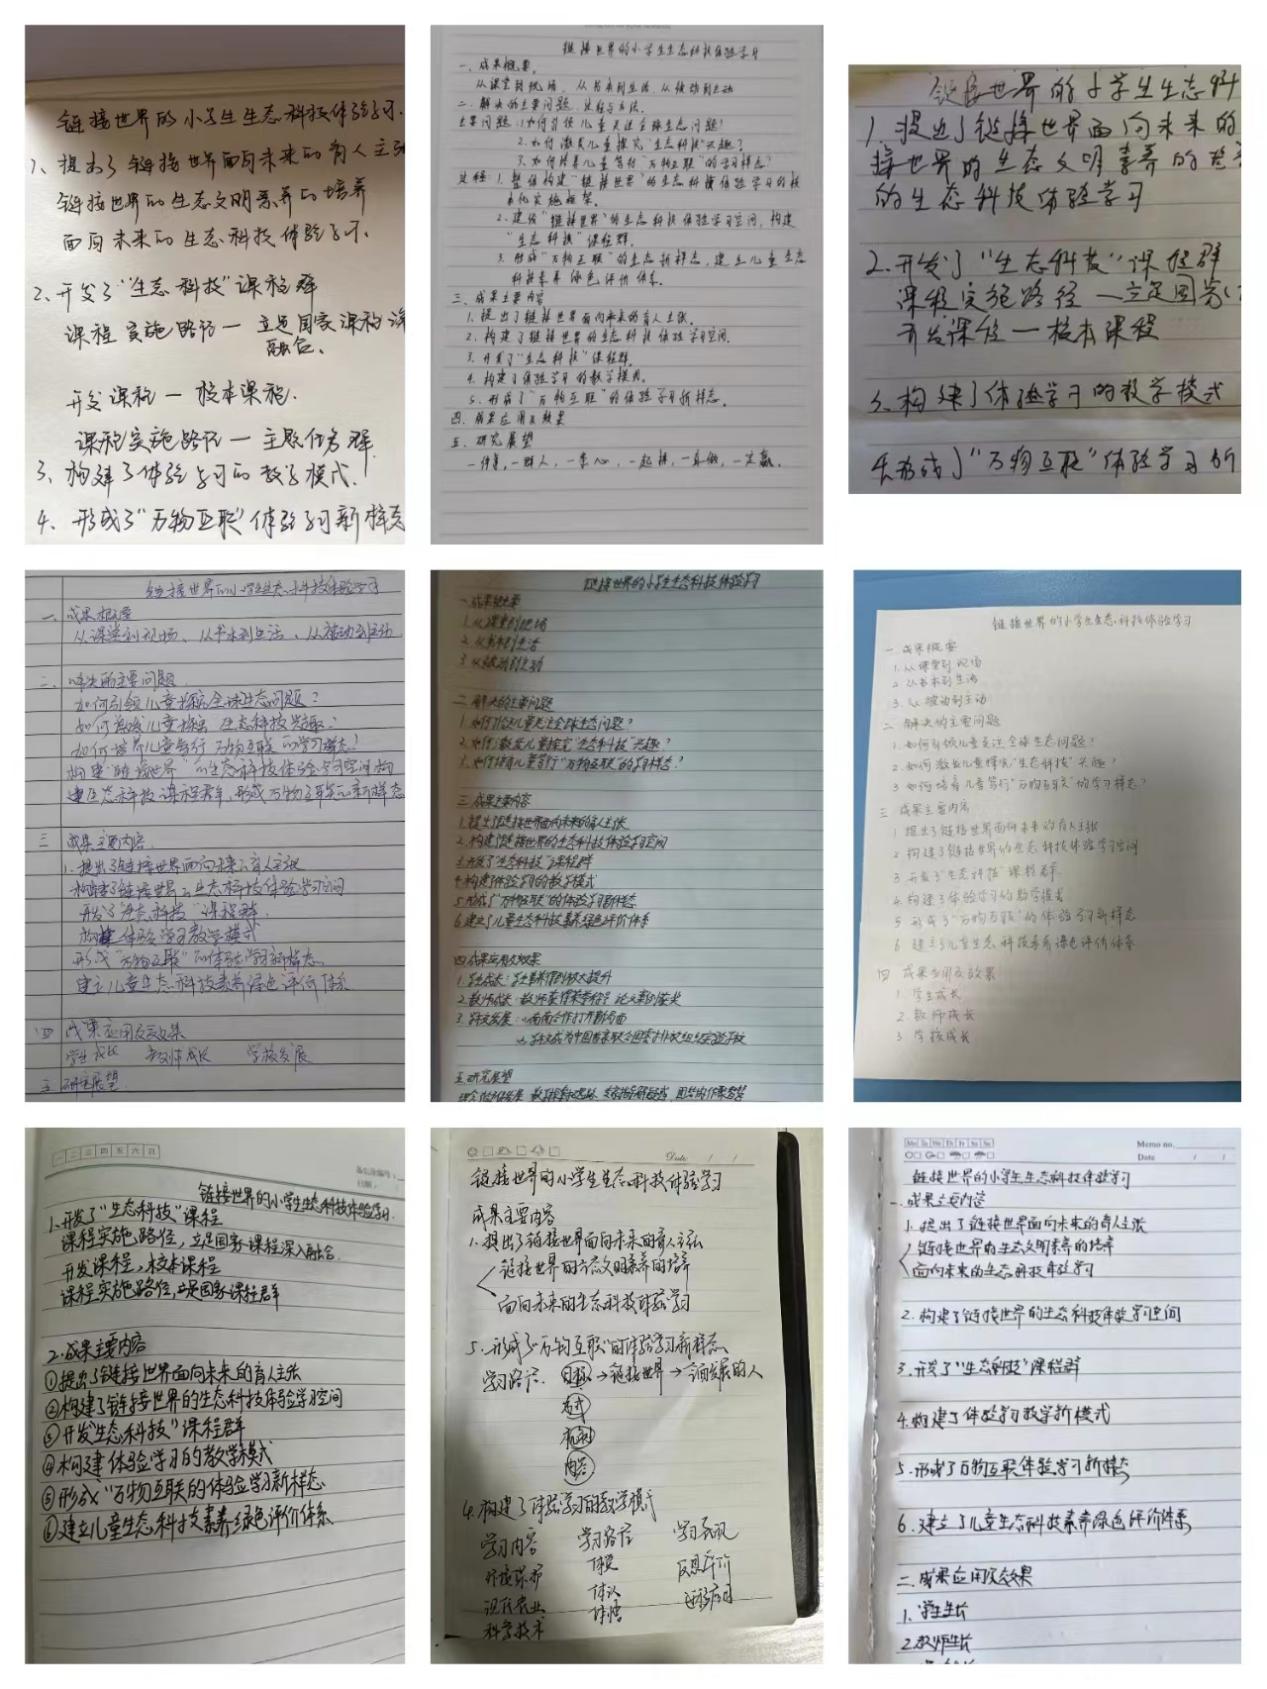 链接世界的小学生生态科技体验学习.
1、提出了链接世界面向未来的育人主张
链接世界的生态文明素养的培养
面向未来的生态科技体验学习.
2、开发了“生态科技”课程群
课程实施路径一 立足国家课程 深
融合。
开发课程一 校本课程.
课程实施路径一 主题任务群
3、构建了体验学习的教学模式.
4、形成了“万物互联”体验学习新样态
链接世界的小学生生态科技体验学习
一、成果概要。
从课堂到现场、从书本到生活、从被动到主动
二、解决的主要问题、过程与方法.
主要问题:1.如何引领儿童关注全球生态问题?
2.如何激发儿童探究“生态科技”兴趣?
3.如何培育儿童笃行“万物互联”的学习样态?
过程:1.整体构建“链接世界”的生态科技体验学习的校
本化实施框架。
2.建设“链接世界”的生态科技体验学习空间,构建
“生态科技”课程群。
3.形成“万物互联”的生态新样态,建立儿童生态
科技素养绿色评价体系。
三、成果主要内容
1.提出了链接世界面向未来的育人主张。
2.构建了链接世界的生态科技体验学习空间.
3.开发了“生态科技”课程群。
4.构建了体验学习的教学模式。
5.形成了“万物互联”的体验学习新样态。
四、成果应用及效果
五、研究展望
一件事,一群人,一条心,一起拼,一定赢.
链接世界的小学生生态科
1.提出了链接世界面向未来的
接世界的生态文明素养的培
的生态科技体验学习
2.开发了“生态科技”课程群
课程实施路径一立足国家
开发课程一校本课程
3.构建了体验学习的教学模式
4.形成了“万物互联”体验学习新
链接世界的小学生生态科技体验学习
一、成果概要
从课堂到现场、从书本到生活、从被动到主动
二、解决的主要问题.
如何引领儿童探究全球生态问题?
如何激发儿童探究 生态科技兴趣?
如何培养儿童笃行“万物互联”的学习样态?
构建“链接世界”的生态科技体验学习空间构
建生态科技课程群,形成万物互联新样态
三 成果主要内容.
1.提出了链接世界面向未来的育人主张
构建了链接世界的生态科技体验学习空间
开发了“生态科技”课程群.
构建体验学习教学模式
形成“万物互联”的体验学习新样态.
建立儿童生态科技素养绿色评价体系
四 成果应用及效果
学生成长 教师成长 学校发展
五 研究展望
链接世界的小学生生态科技体验学习
一.成果概要
1.从课堂到现场
2.从书本到生活
3.从被动到主动
二.解决的主要问题
1.如何引领儿童关注全球生态问题?
2.如何激发儿童探究“生态科技”兴趣?
3.如何培育儿童笃行“万物互联”的学习样态?
三.成果主要内容
1.提出了链接世界面向未来的育人主张
2.构建了链接世界的生态科技体验学习空间
3.开发了“生态科技”课程群
4.构建了体验学习的教学模式
5.形成了“万物互联”的体验学习新样态
6.建立了儿童生态科技素养绿色评价体系
四.成果应用及效果
1.学生成长:学生素养得到极大提升
2.教师成长:教师获得荣誉称号 论文获奖
3.学校发展:
五.研究展望
链接世界的小学生生态科技体验学习
一.成果概要
1.从课堂到现场
2.从书本到生活
3.从被动到主动
二 解决的主要问题
1.如何引领儿童关注全球生态问题?
2.如何激发儿童探究“生态科技”兴趣?
3 如何培育儿童笃行“万物互联”的学习样态?
三 成果主要内容
1 提出了链接世界面向未来的育人主张
2 构建了链接世界的生态科技体验学习空间
3 开发了“生态科技”课程群
4 构建了体验学习的教学模式
5 形成了“万物互联”的体验学习新样态
6 建立了儿童生态科技素养绿色评价体系
四 成果应用及效果
1 学生成长
2 教师成长
3 学校成长
一 二 三 四 五 六 日
链接世界的小学生生态科技体验学习.
1.开发了“生态科技”课程
课程实施路径,立足国家课程深入融合.
开发课程,校本课程
课程实施路径,立足国家课程群
2.成果主要内容
①提出了链接世界面向未来的育人主张
②构建了链接世界的生态科技体验学习空间
③开发“生态科技”课程群
④构建体验学习的教学模式
⑤形成“万物互联的体验学习新样态.
⑥建立儿童生态科技素养绿色评价体系
Date / /
链接世界的小学生生态科技体验学习
成果主要内容
1.提出了链接世界面向未来的育人主张
链接世界的生态文明素养的培养
面向未来的生态科技体验学习
5.形成了“万物互联”的体验学习新样态
学习路径. 目标→链接世界→ 发展的人
方式
机制
内容
4.构建了体验学习的教学模式
学习内容 学习路径 学习
环境保护 体验 反思评价
现代农业 体认 迁移应用
科学技术 体悟
Mo Tu We Th Fr Sa Su
Memo no.
Date / /
链接世界的小学生生态科技体验学习
一.成果主要内容
1.提出了链接世界面向未来的育人主张
链接世界的生态文明素养的培养
面向未来的生态科技体验学习
2.构建了链接世界的生态科技体验学习空间
3.开发了“生态科技”课程群
4.构建了体验学习教学新模式
5.形成了万物互联体验学习新样态
6.建立了儿童生态科技素养绿色评价体系
二.成果应用及效果
1.学生成长
2.教师成长